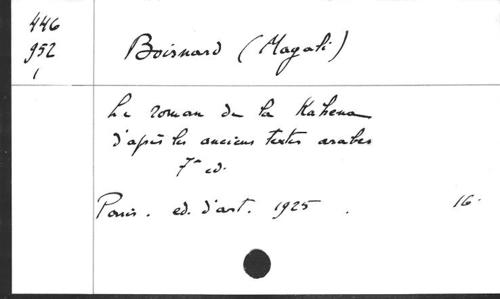 446
952
1
Boisnard (Magali)
Le roman de la Kahena
d'après les anciens textes arabes
7e ed.
Paris. ed. d'art. 1925. 16.